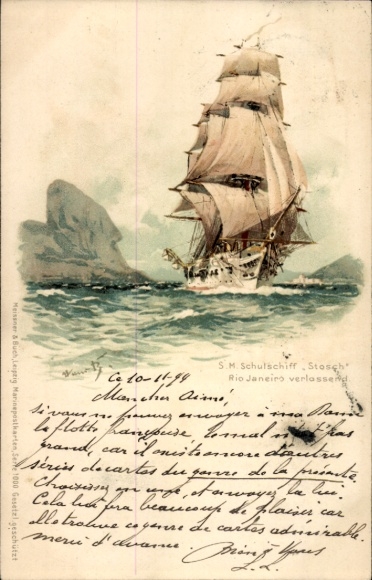 S. M. Schulschiff „Stosch"
Rio Janeiro verlassend.
Meissner & Buch, Leipzig Marinepostkarten, Serie 1000 Gesetzl. geschützt
Ce 10-11-99
Mon cher Aimé,
si vous ne pouvez envoyer à ma
la flotte française, le mal n'est pas
grand, car il existe encore d'autres
séries de cartes du genre de la présente.
Choisissez en une, et envoyez la lui.
Cela lui fera beaucoup de plaisir car
elle trouve ce genre de cartes admirable.
merci d'avance.
L. L.